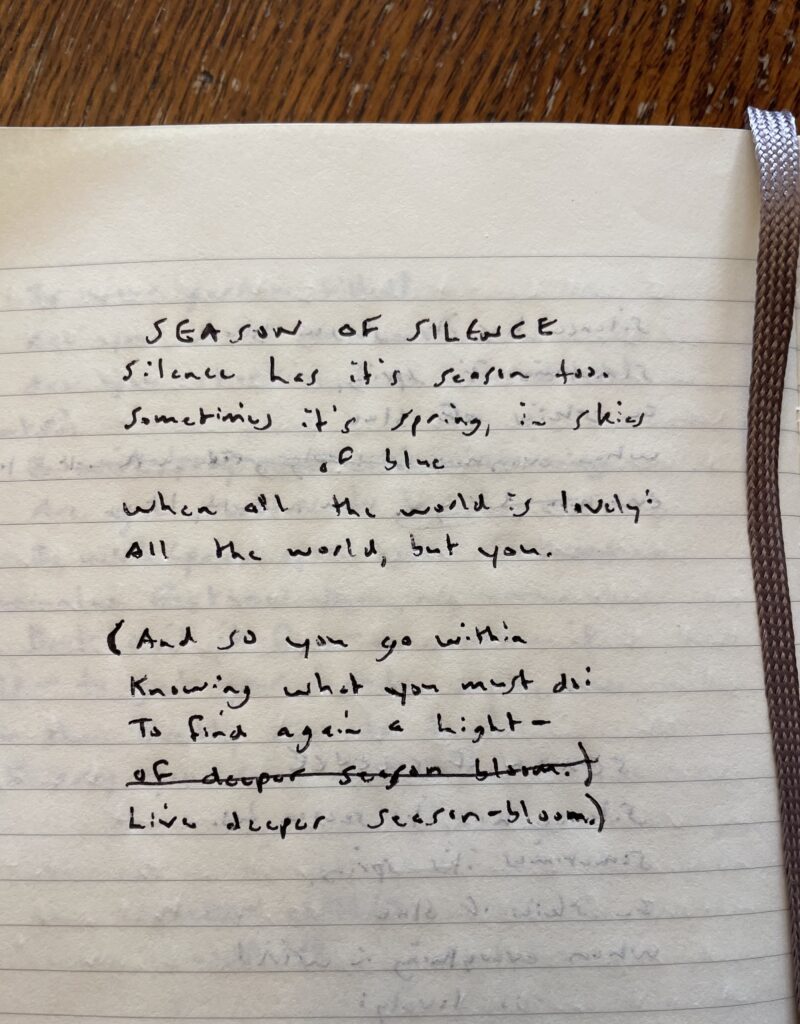 SEASON OF SILENCE
Silence has it's season too.
Sometimes it's spring, in skies
of blue
When all the world is lovely:
All the world, but you.
(And so you go within
Knowing what you must do:
To find again a light-
of deeper season bloom.)
Live deeper season-bloom.)